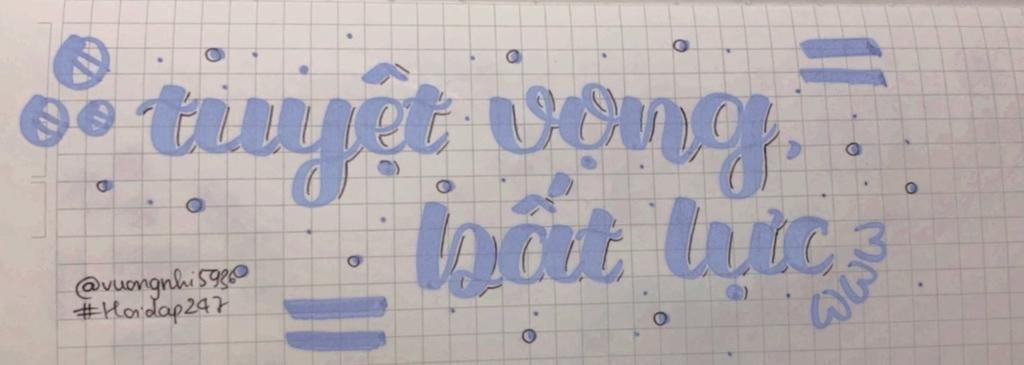 tuyệt vọng,
bất lực
@vuongnhi5936
#Hoidap247